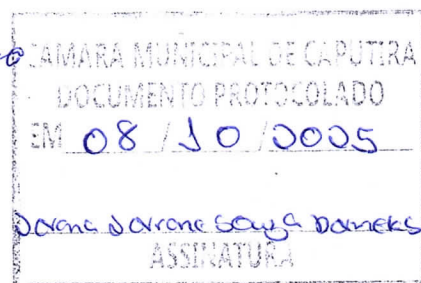 CÂMARA MUNICIPAL DE CAPUTIRA
DOCUMENTO PROTOCOLADO
EM 08/10/2025
Souza
ASSINATURA